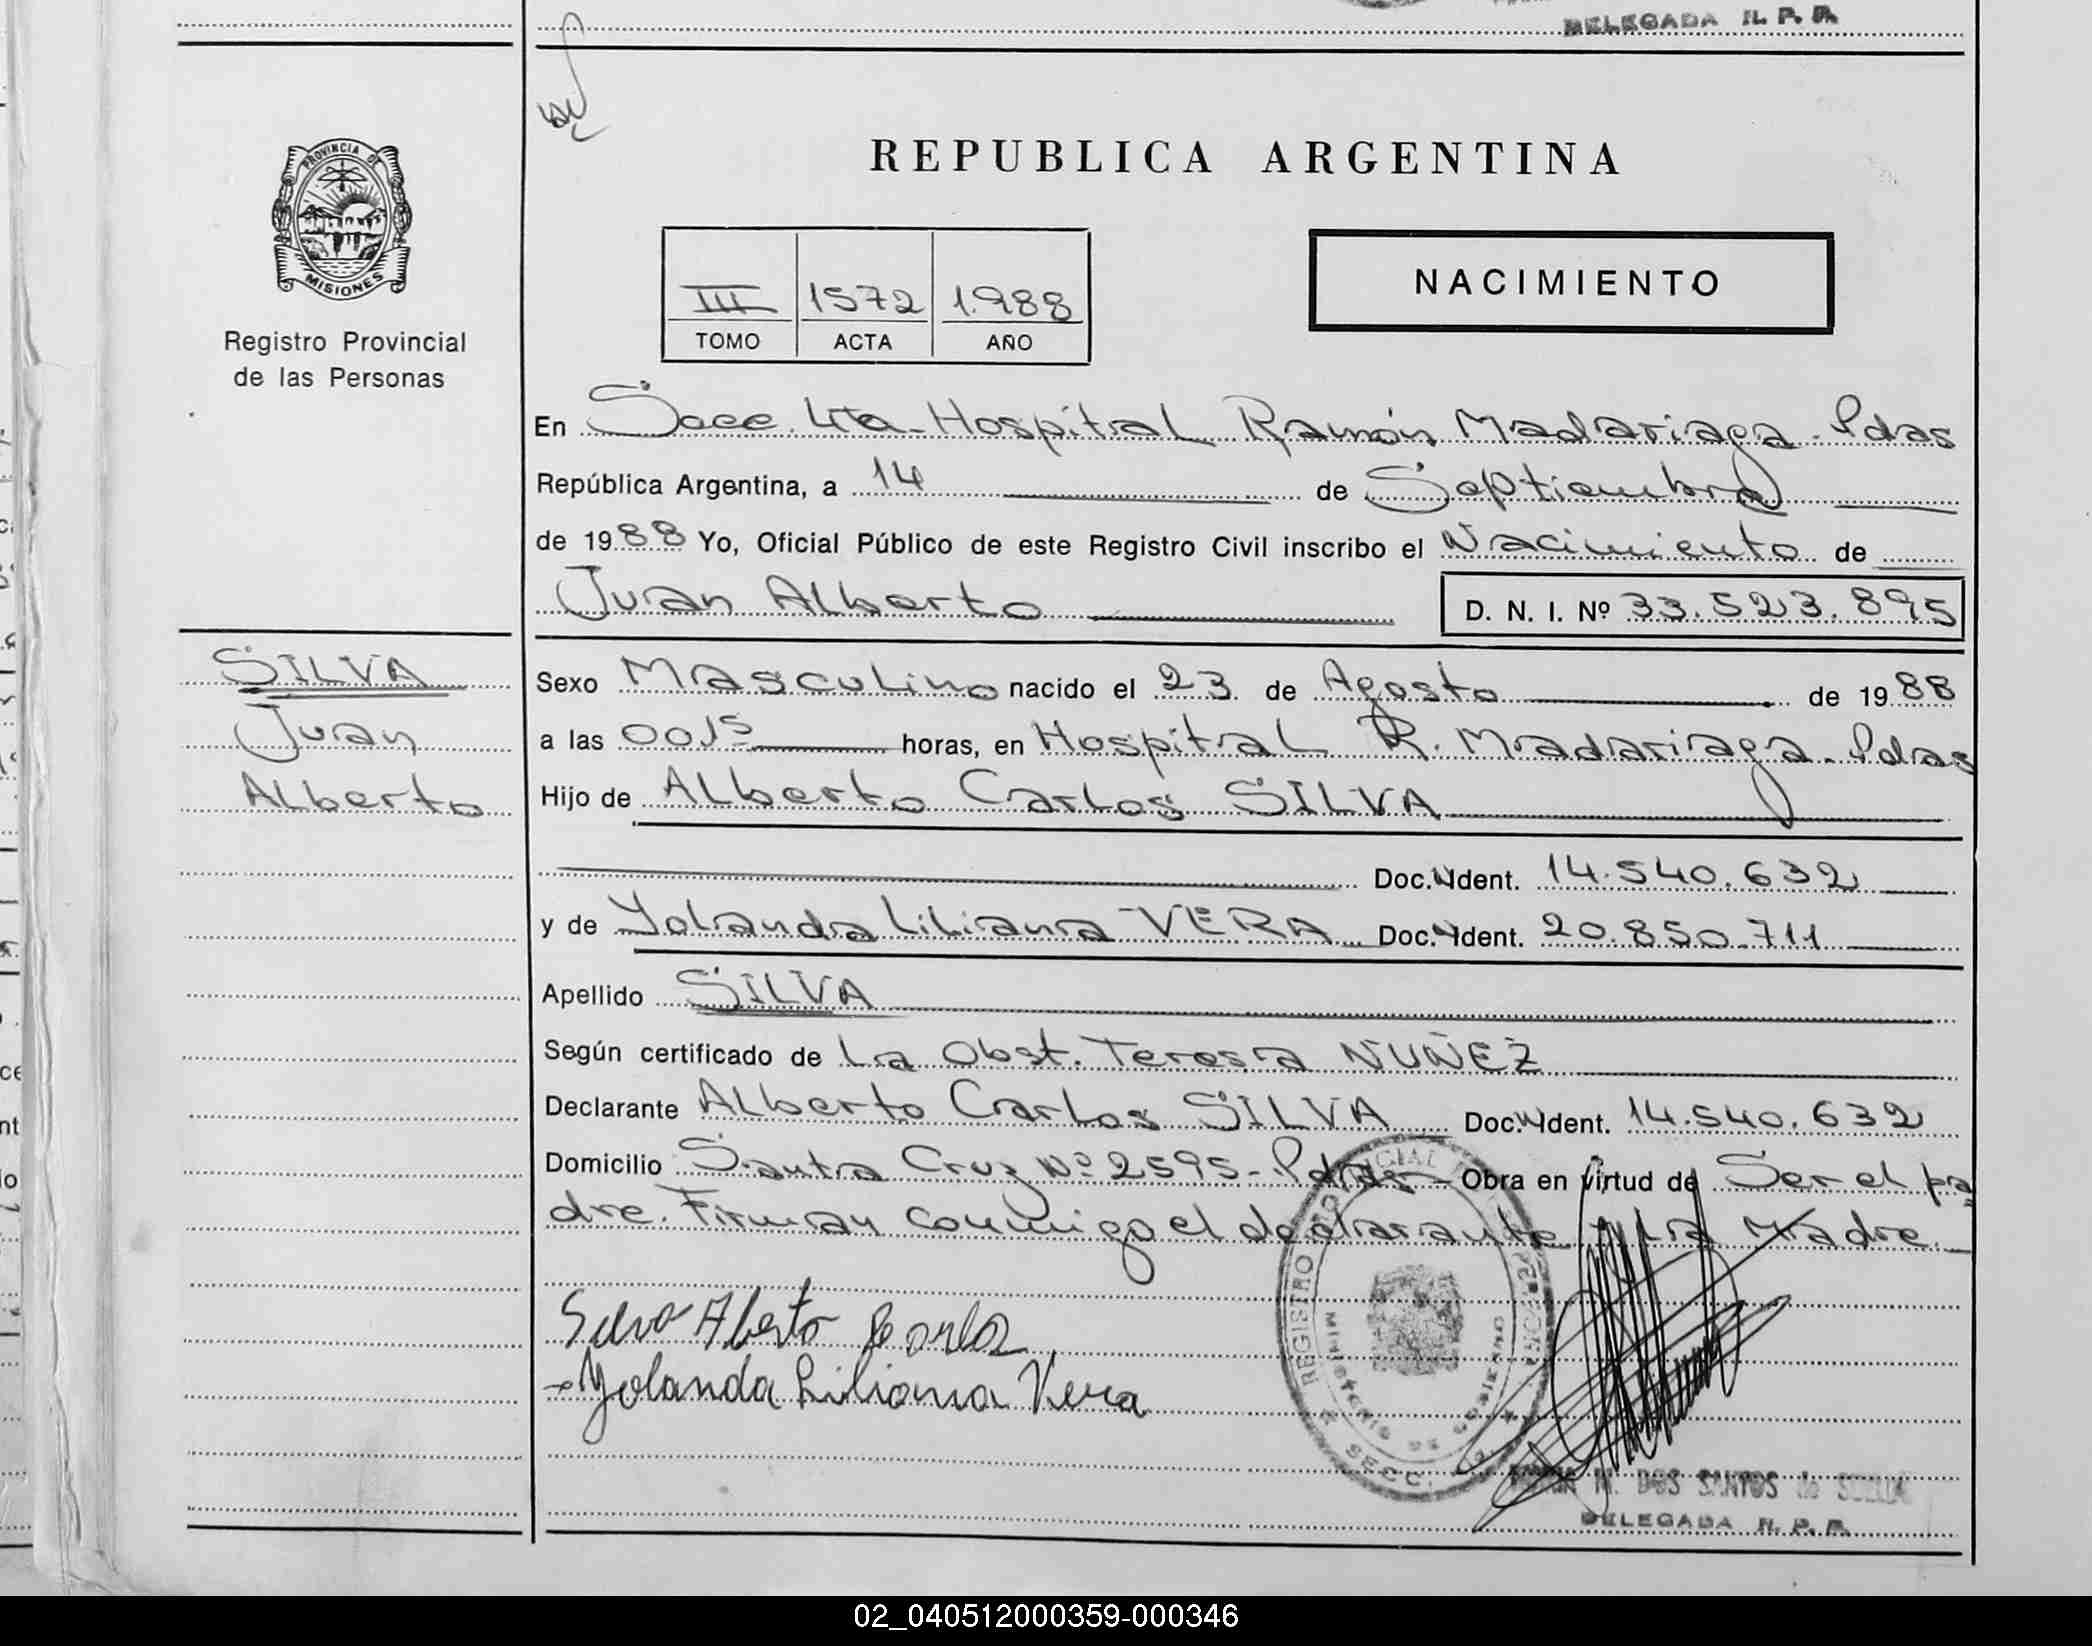 DELEGADA R. P. P.
REPUBLICA ARGENTINA
PROVINCIA DE
MISIONES
Registro Provincial
de las Personas
III 1572 1.988
TOMO ACTA AÑO
NACIMIENTO
En Secc. 4ta. Hospital Ramón Madariaga - Pdas
República Argentina, a 14 de Septiembre
de 1988 Yo, Oficial Público de este Registro Civil inscribo el Nacimiento de
Juan Alberto D. N. I. Nº 33.523.895
SILVA
Juan
Alberto
Sexo Masculino nacido el 23 de Agosto de 1988
a las 0015 horas, en Hospital R. Madariaga - Pdas
Hijo de Alberto Carlos SILVA
Doc. Ident. 14.540.632
y de Yolanda Liliana VERA Doc. Ident. 20.850.711
Apellido SILVA
Según certificado de La Obst. Teresa NUÑEZ
Declarante Alberto Carlos SILVA Doc. Ident. 14.540.632
Domicilio Santa Cruz Nº 2595 - Pdas - Obra en virtud de Ser el pa
dre. Firman conmigo el declarante y la Madre.
Silva Alberto Carlos
Yolanda Liliana Vera
REGISTRO
MINISTERIO DE GOBIERNO
SECC.
M. DOS SANTOS de
DELEGADA R. P. P.
02_040512000359-000346